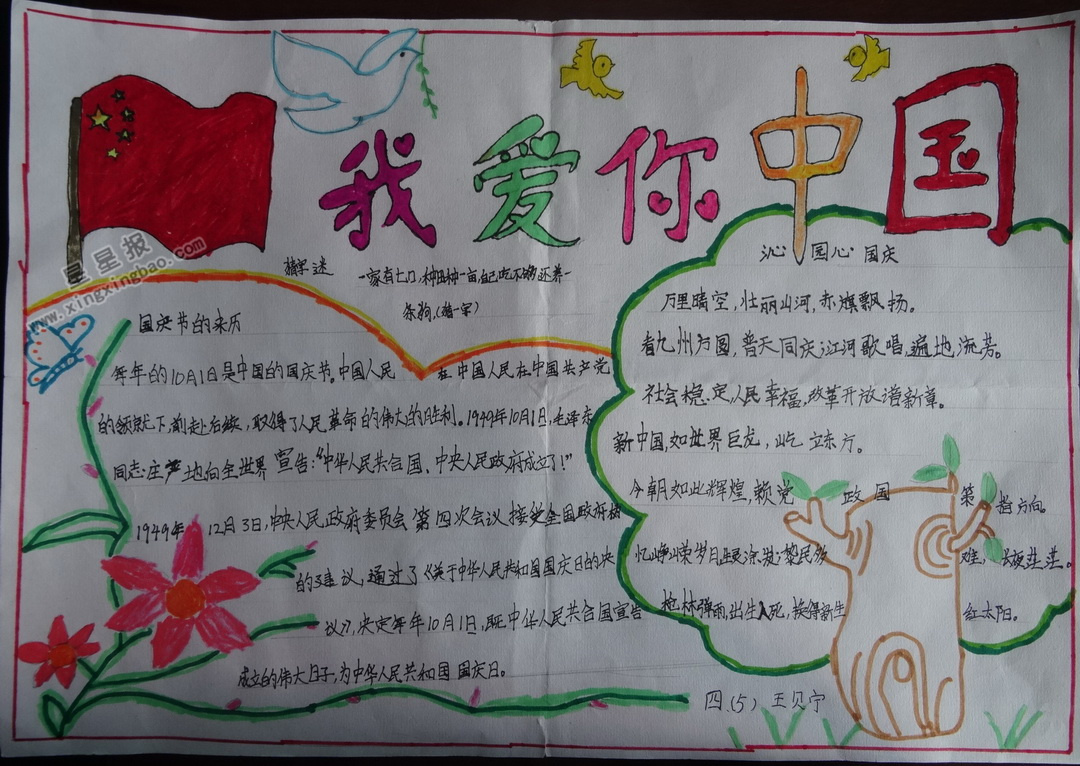 我爱你中国
星星报
www.xingxingbao.com
猜字迷 一家有七口,种田种一亩,自己吃不够,还养一
条狗。(猜一字)
国庆节的来历
每年的10月1日是中国的国庆节。中国人民 在中国人民在中国共产党
的领就下,前赴后续,取得了人民革命的伟大的胜利。1949年10月1日,毛泽东
同志庄严地向全世界宣告:“中华人民共合国、中央人民政府成立了!”
1949年 12月3日,中央人民政府委员会第四次会议接受全国政府
的建议,通过了《关于中华人民共和国国庆日的决
议》,决定每年10月1日,既中华人民共合国宣告
成立的伟大日子,为中华人民共和国国庆日。
沁园心 国庆
万里晴空,壮丽山河,赤旗飘扬。
看九州万圆,普天同庆;江河歌唱,遍地流芳。
社会稳定,人民幸福,改革开放谱新章。
新中国,如世界巨龙,屹立东方。
今朝如此辉煌,赖党政国策指方向。
忆峥嵘岁月,黎民多难,长夜茫茫。
枪林弹雨,出生入死,换得新生红太阳。
四(5) 王贝宁